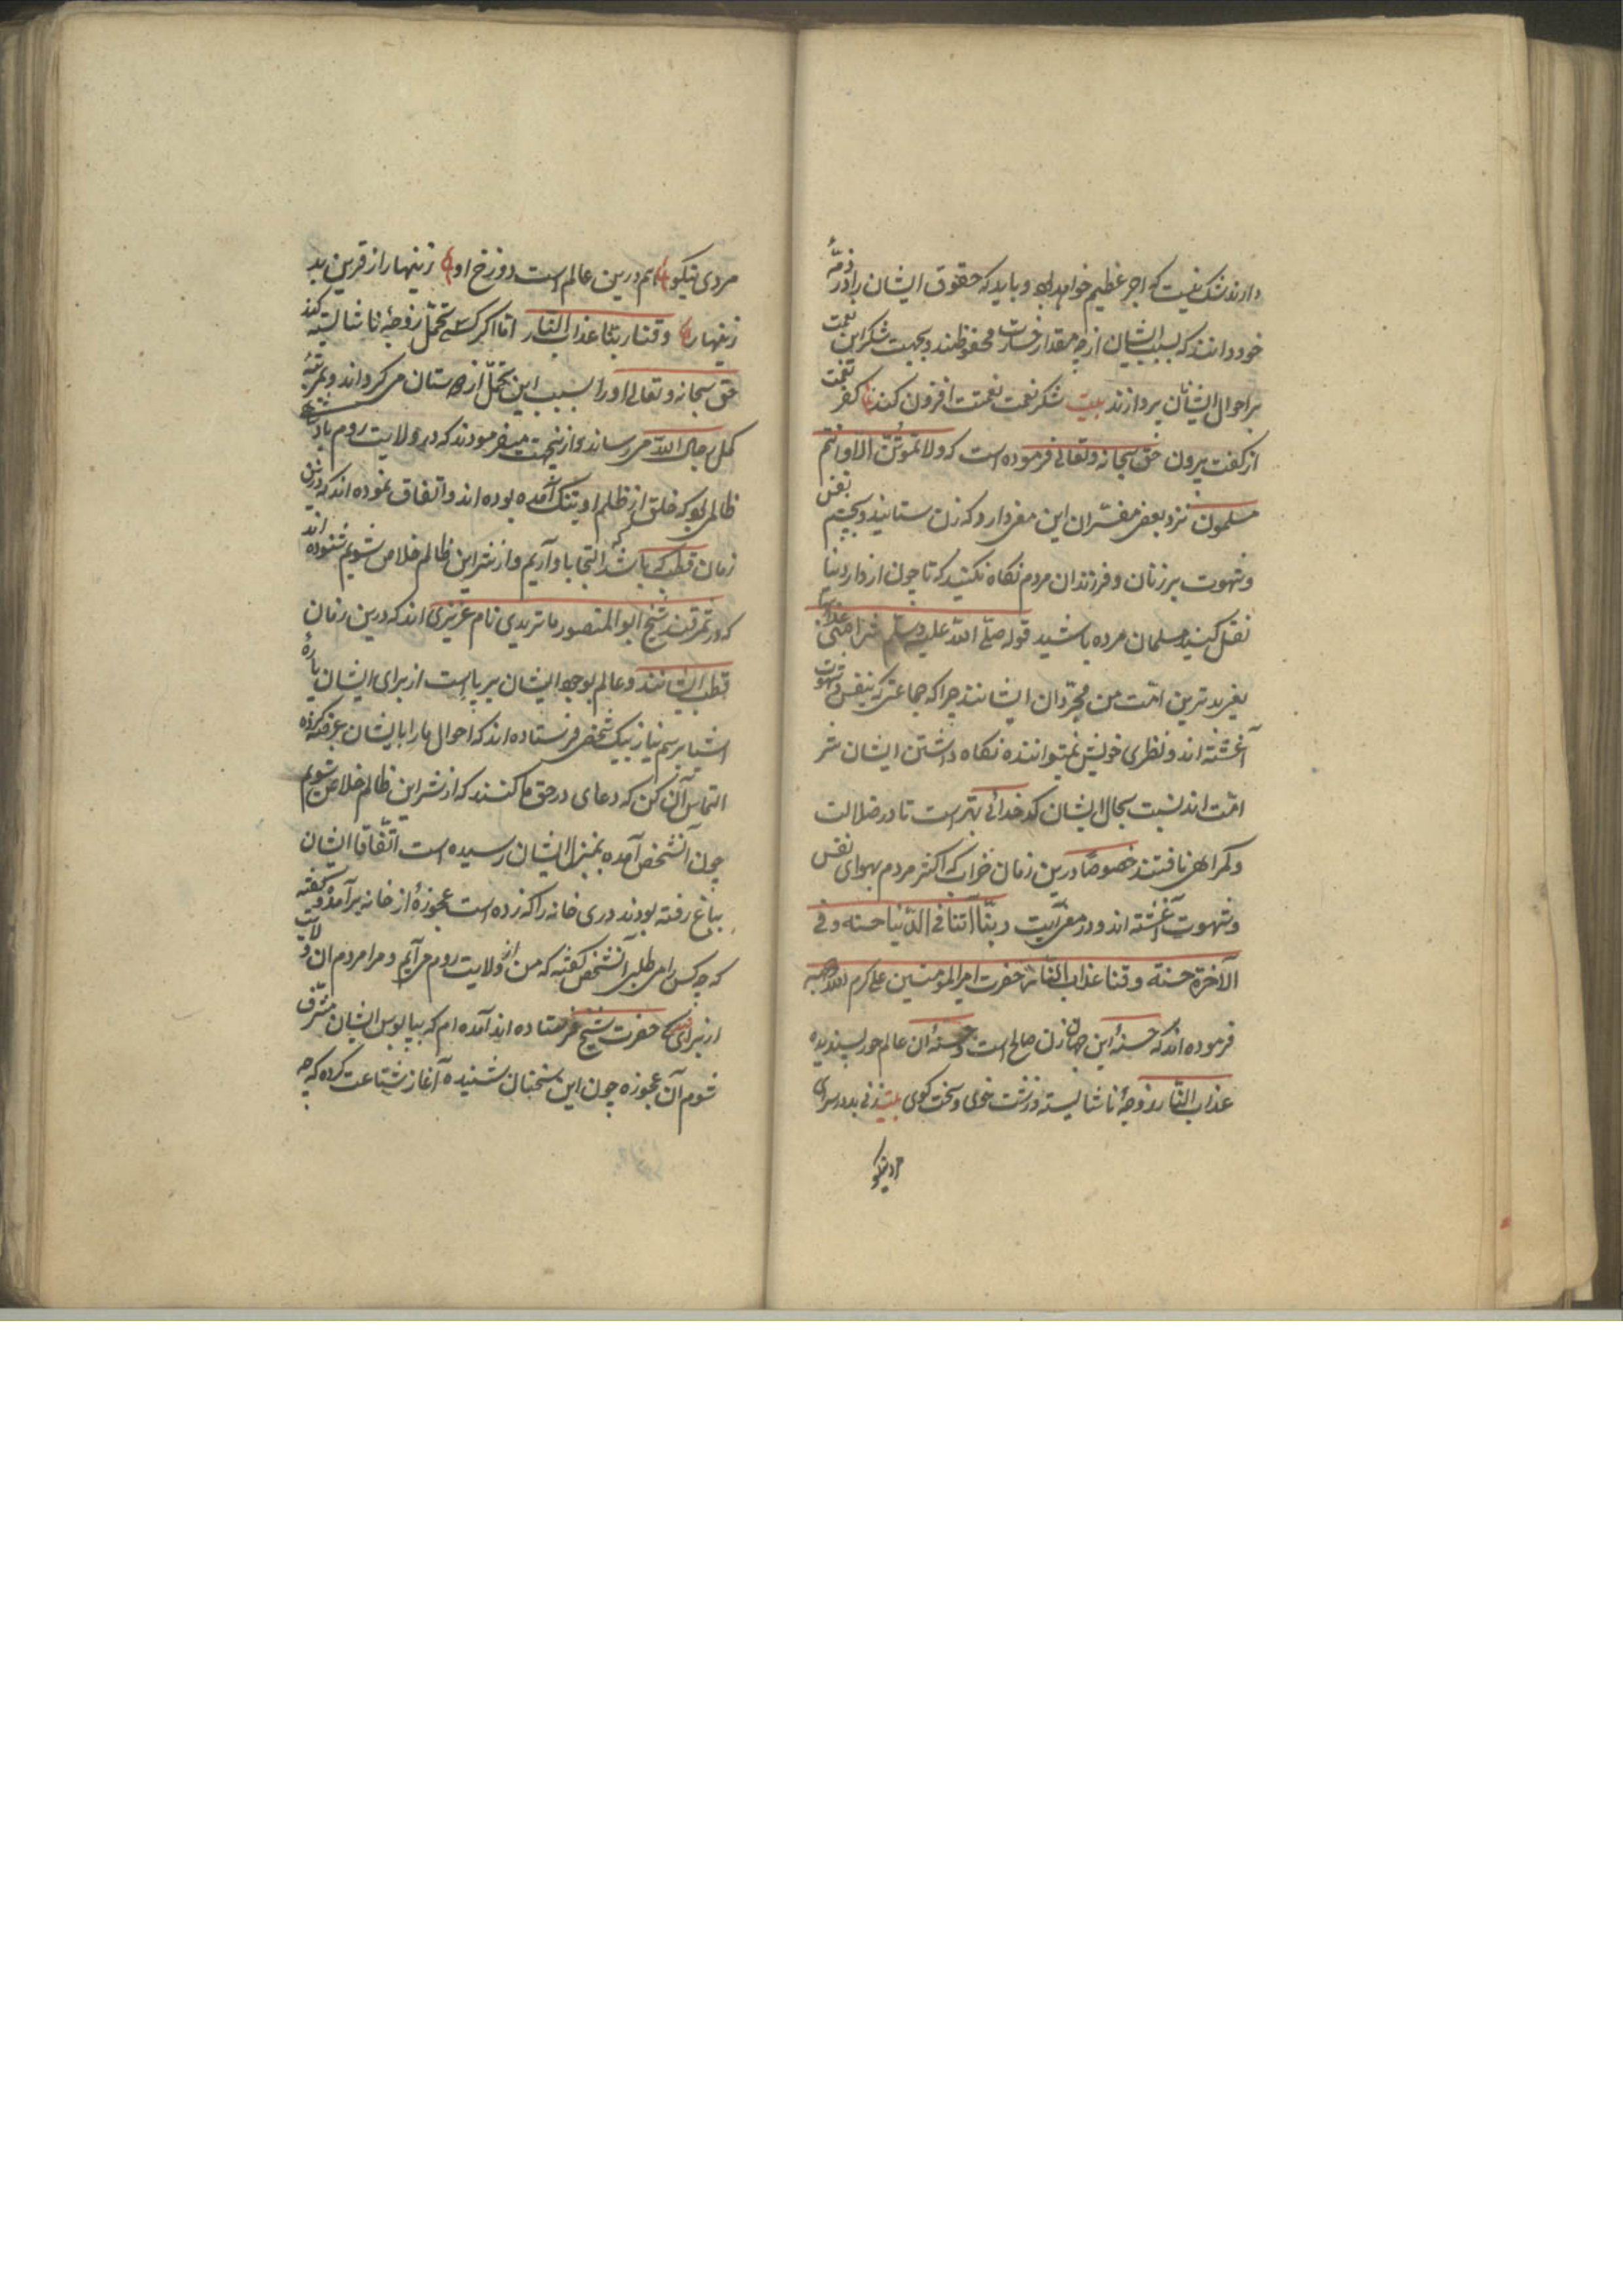 دارند شک نیست که اجر عظیم خواهد بود و باید که حقوق ایشان را در ذمهٔ
خود دانند که بسبب ایشان از چه مقدار خسارت محفوظند و بجهت شکر این نعمت
بر احوال ایشان پردازند بیت شکر نعمت نعمتت افزون کند کفر نعمت
از کفت بیرون حق سبحانه وتعالی فرموده است که ولا تموتن الا وانتم
مسلمون نزد بعضی مفسران این معنی دارد که زن ستانید و بچشم نفس
و شهوت بر زنان و فرزندان مردم نگاه نکنید که تا چون از دار دنیا
نقل کنید مسلمان مرده باشید قوله صلی الله علیه وسلم شر امتی
یعنی بدترین امت من مجردان ایشانند چرا که جماعتی که بنفس و شهوت
آغشته اند و نظری خویش نمیتوانند نگاه داشتن ایشان شر
امت اند نسبت بحال ایشان کدخدائی بهتر است تا در ضلالت
و گمراهی نافتند خصوصا درین زمان خراب که اکثر مردم بهوای نفس
و شهوت آغشته اند و در معنی آیت ربنا آتنا فی الدنیا حسنه وفی
الآخرة حسنة وقنا عذاب النار حضرت امیر المومنین علی کرم الله وجهه
فرموده اند که حسنهٔ این جهان زن صالح است و حسنهٔ آن عالم حور پسندیده
عذاب النار زوجهٔ ناشایسته و زشت خوی و سخت گوی بیت زنی بد در سرای
مرد نیکو
مردی نیکو هم درین عالم است دوزخ او زینهار از قرین بد
زینهار وقنا ربنا عذاب النار اما اگر کسی تحمل زوجهٔ ناشایسته کند
حق سبحانه وتعالی او را بسبب این تحمل از دوستان می گرداند و بمرتبهٔ
کمل رجال الله می رساند و ازینجهت میفرمودند که در ولایت روم پادشاه
ظالمی بود که خلق از ظلم او بتنگ آمده بوده اند و اتفاق نموده اند که درین
زمان قطب که باشد التجا باو آریم و از شر این ظالم خلاص شویم شنوده اند
که در سمرقند شیخ ابو المنصور ماتریدی نام عزیزی اند که درین زمان
قطب ایشانند و عالم بوجود ایشان برپا است از برای ایشان پارهٔ
اشیا برسم نیاز بیک شخصی فرستاده اند که احوال ما را بایشان عرض کرده
التماس آن کن که دعای در حق ما کنند که از شر این ظالم خلاص شویم
چون آنشخص آمده بمنزل ایشان رسیده است اتفاقا ایشان
بباغ رفته بودند دری خانه را که زده است عجوزهٔ از خانه برآمد و گفته
که چه کس را می طلبی آنشخص گفته که من از ولایت روم می آیم و مرا مردم آن ولایت
از برای حضرت شیخ فرستاده اند آمده ام که بپابوس ایشان مشرف
شوم آن عجوزه چون این سخنان شنیده آغاز شناعت کرده که چه